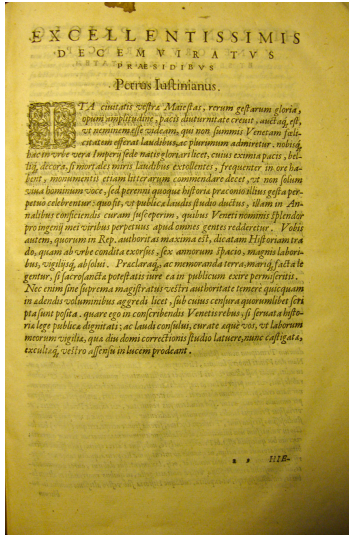 EXCELLENTISSIMIS
DECEMVIRATVS
PRAESIDIBVS
Petrus Iustinianus.
ITA ciuitatis vestræ Maiestas, rerum gestarum gloria,
opum amplitudine, pacis diuturnitate creuit, auctaq́; est,
vt neminem esse videam, qui non summis Venetam fœli-
citatem efferat laudibus, ac plurimum admiretur. nobisq́;
hac in vrbe vera Imperij sede natis gloriari licet, cuius eximia pacis, bel-
liq́; decora, si mortales miris laudibus extollentes, frequenter in ore ha-
bent, monumentis etiam litterarum commendare decet, vt non solum
viua hominum voce, sed perenni quoque historia præconio illius gesta per-
petuo celebrentur: quo fit, vt publicæ laudis studio ductus, illam in An-
nalibus consciendis curam susceperim, quibus Veneti nominis splendor
pro ingenij mei viribus perpetuus apud omnes gentes redderetur. Vobis
autem, quorum in Rep. authoritas maxima est, dicatam Historiam tra
do, quam ab vrbe condita exorsus, sex annorum spacio, magnis labori-
bus, vigilijsq́; absolui. Præclaraq́; ac memoranda terra, mariq́; facta le
gentur, si sacrosancta potestatis iure ea in publicum exire permiseritis.
Nec enim sine suprema magistratus vestri authoritate temere quicquam
in ædendis voluminibus aggredi licet, sub cuius censura quorumlibet scri
pta sunt posita. quare ego in conscribendis Venetis rebus, si seruata histo-
riæ lege publicæ dignitati; ac laudi consului, curate æque vos, vt laborum
meorum vigiliæ, quæ diu domi correctionis studio latuere, nunc castigatæ,
excultæq́; vestro assensu in lucem prodeant.
HIE-